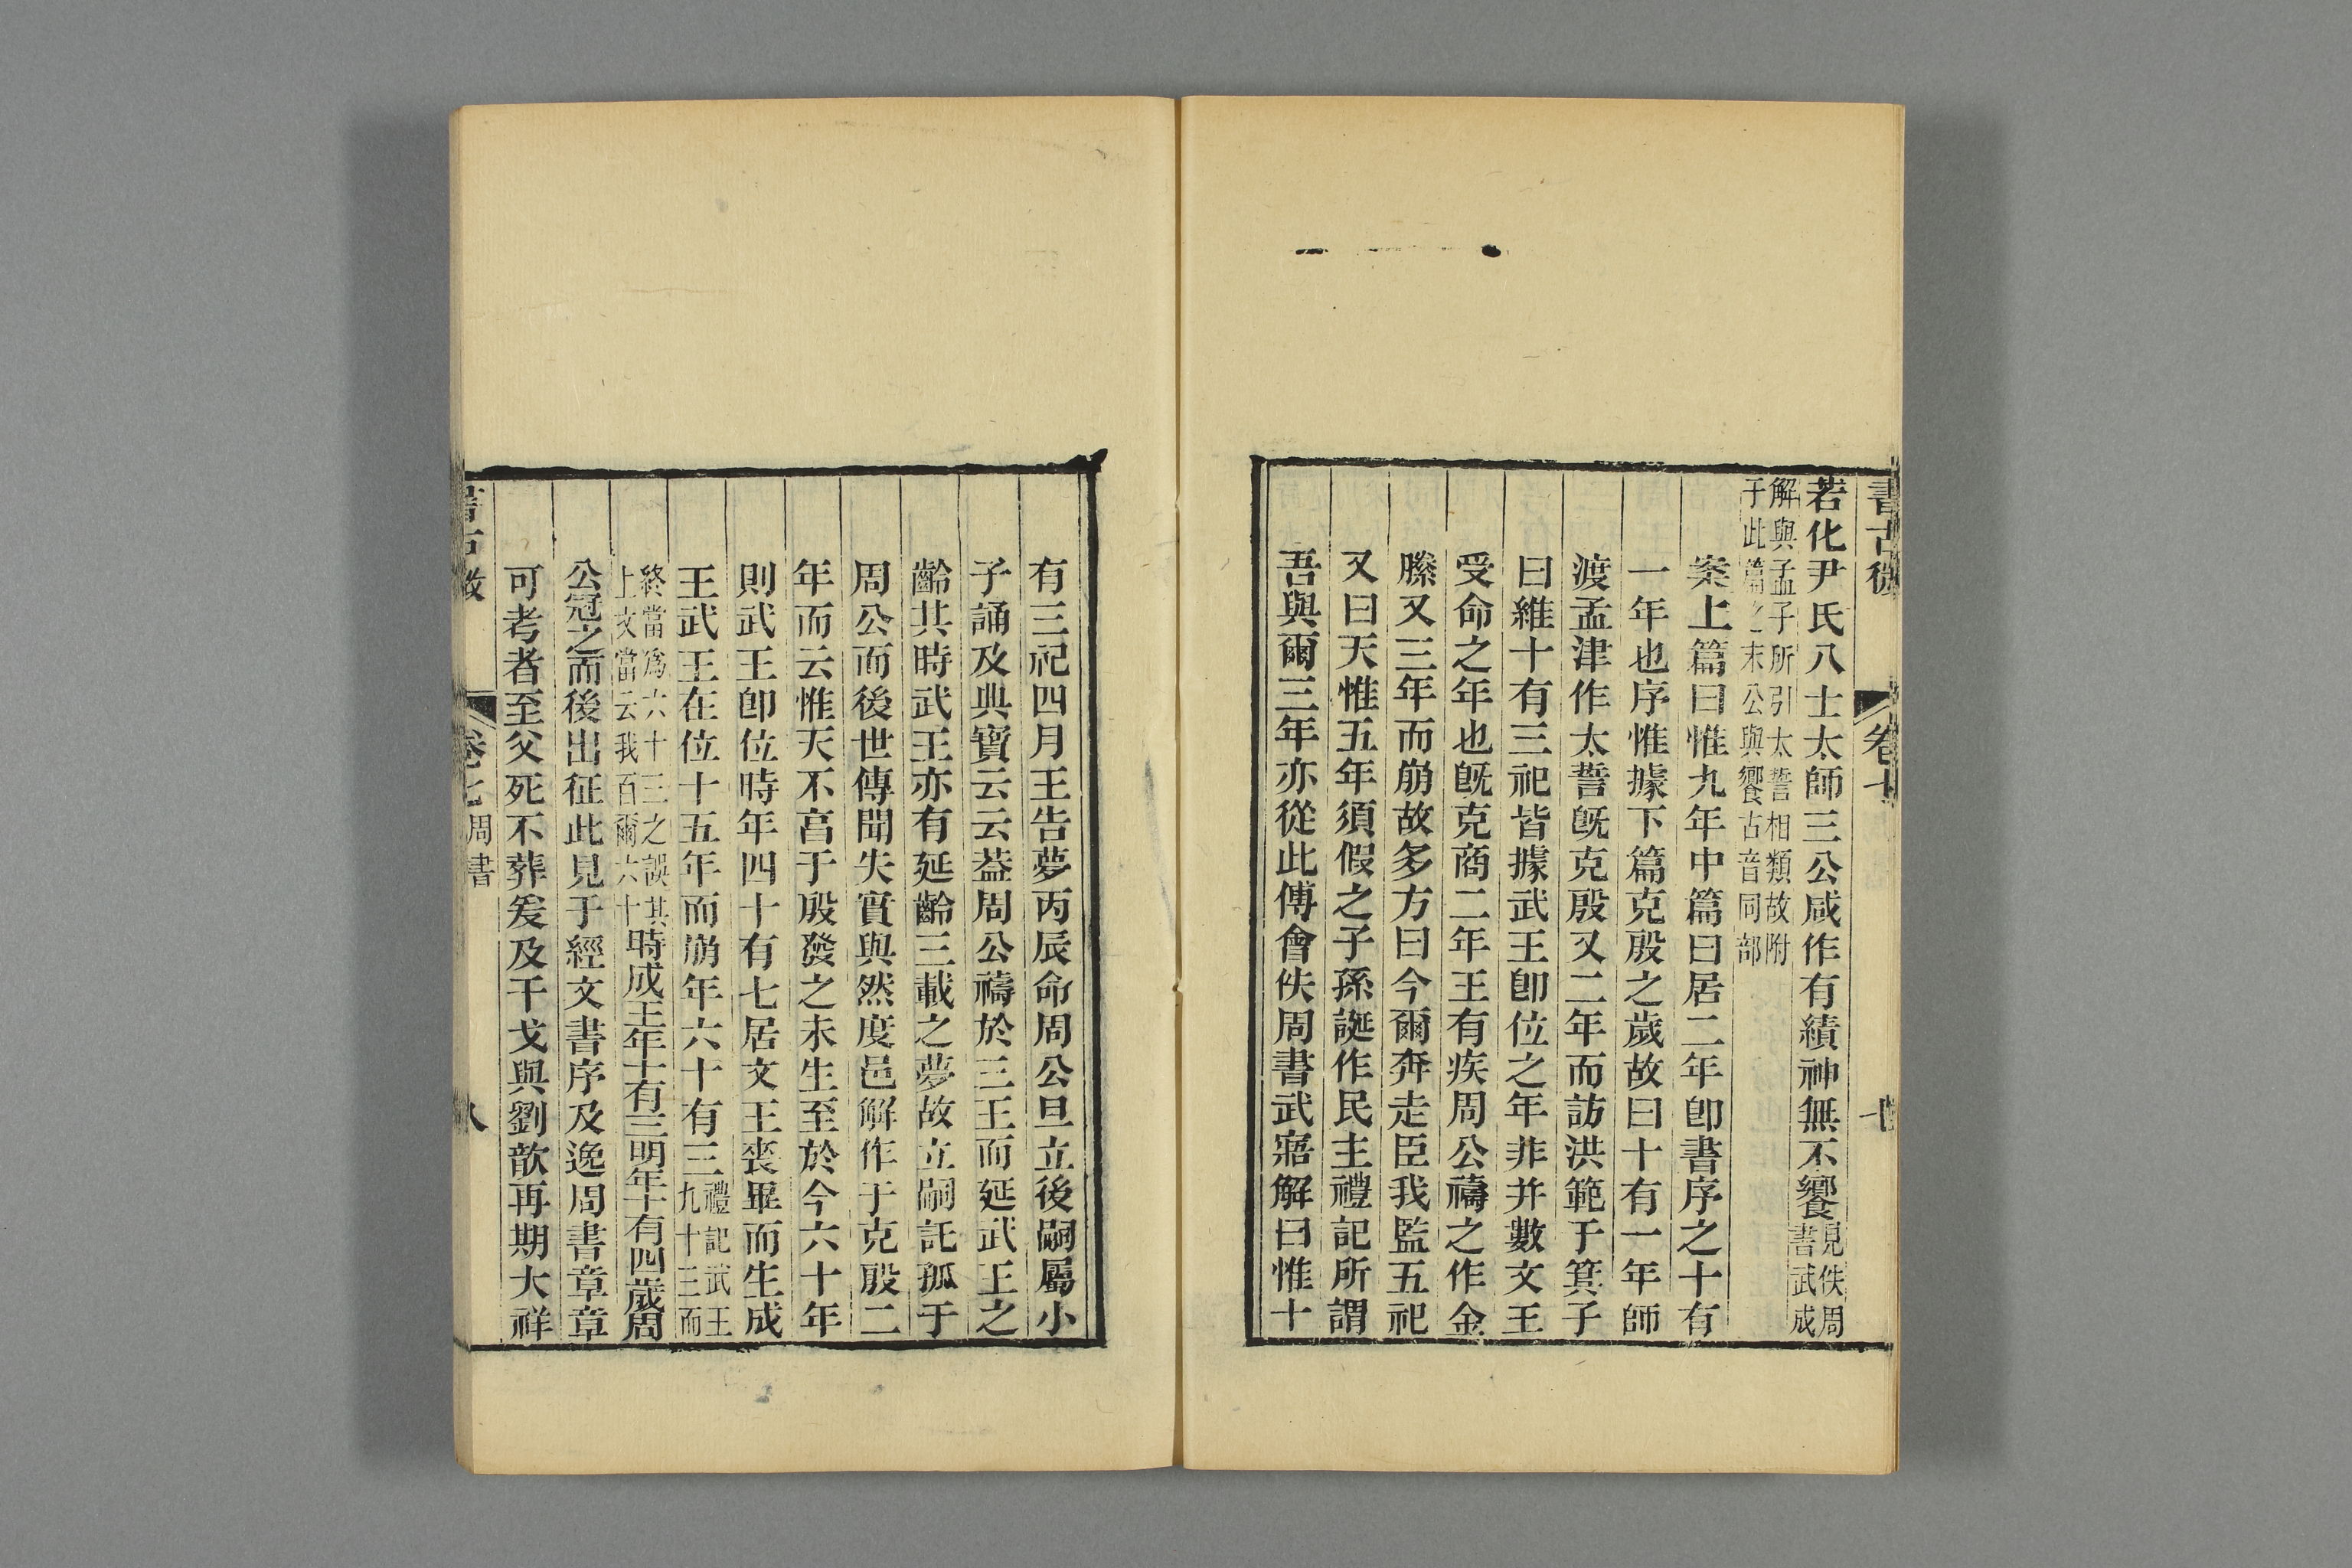 書古微
卷七
若化尹氏八士太師三公咸作有績神無不饗見佚周書武成
解與孟子所引太誓相類故附于此篇之末公與饗古音同部
案上篇曰惟九年中篇曰居二年卽書序之十有
一年也序惟據下篇克殷之歲故曰十有一年師
渡孟津作太誓旣克殷又二年而訪洪範于箕子
曰維十有三祀皆據武王卽位之年非并數文王
受命之年也旣克商二年王有疾周公禱之作金
縢又三年而崩故多方曰今爾奔走臣我監五祀
又曰天惟五年須假之子孫誕作民主禮記所謂
吾與爾三年亦從此傅會佚周書武寤解曰惟十
有三祀四月王告夢丙辰命周公旦立後嗣屬小
子誦及典寶云云葢周公禱於三王而延武王之
齡其時武王亦有延齡三載之夢故立嗣託孤于
周公而後世傳聞失實與然度邑解作于克殷二
年而云惟天不亯于殷發之未生至於今六十年
則武王卽位時年四十有七居文王喪畢而生成
王武王在位十五年而崩年六十有三禮記武王九十三而
終當爲六十三之誤其上文當云我百爾六十時成王年十有三明年十有四歲周
公冠之而後出征此見于經文書序及逸周書章章
可考者至父死不葬爰及干戈與劉歆再期大祥
書古微
卷七 周書
八